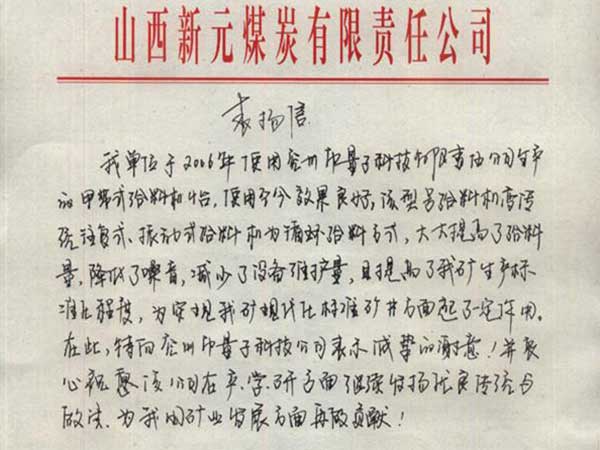 山西新元煤炭有限责任公司
表扬信
我单位于2006年使用兖州中量子科技有限责任公司生产
的甲带式给料机4台,使用至今效果良好,该型号给料机变传
统往复式、振动式给料机为循环给料方式,大大提高了给料
量,降低了噪音,减少了设备维护量,且提高了我矿生产标
准化强度,为实现我矿现代化标准矿井方面起了一定作用。
在此,特向兖州中量子科技公司表示诚挚的谢意!并衷
心祝愿该公司在产、学、研方面继续发扬优良传统与
做法、为我国矿业发展方面再做贡献!